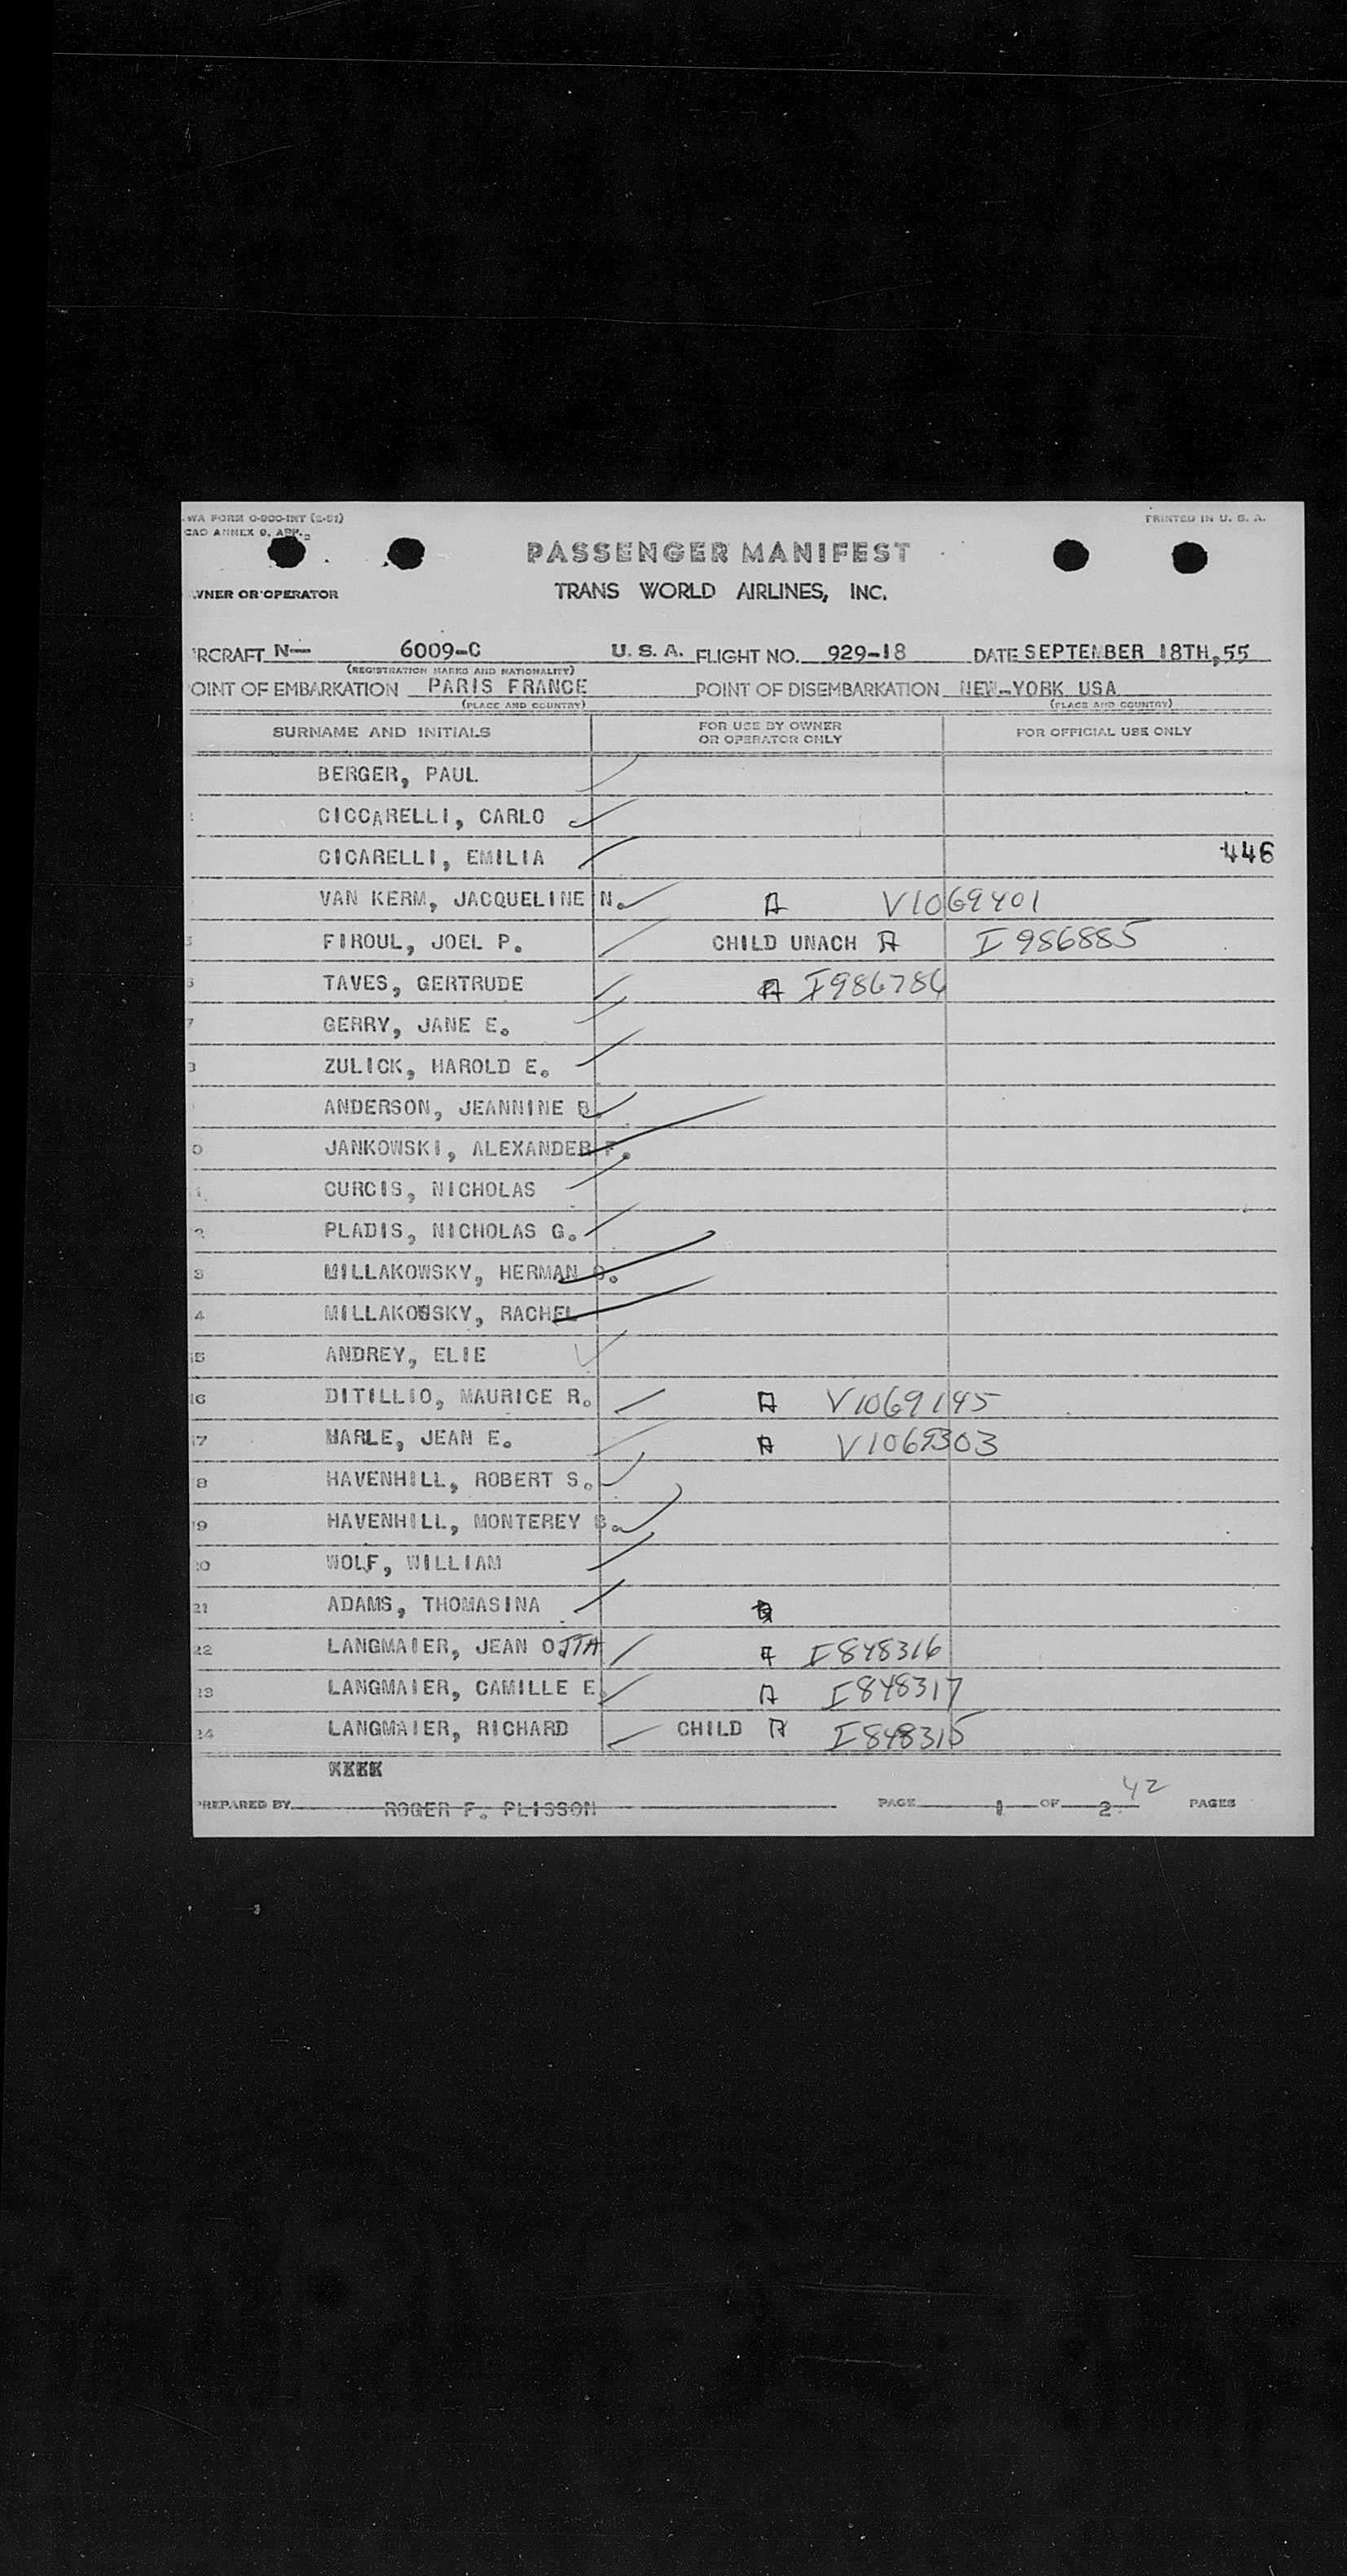 WA FORM O-800-INT (2-51)
CAO ANNEX 9, APP.
PRINTED IN U. S. A.
PASSENGER MANIFEST
WNER OR OPERATOR TRANS WORLD AIRLINES, INC.
RCRAFT N— 6009-C U. S. A. FLIGHT NO. 929-18 DATE SEPTEMBER 18TH,55
(REGISTRATION MARKS AND NATIONALITY)
OINT OF EMBARKATION PARIS FRANCE POINT OF DISEMBARKATION NEW-YORK USA
(PLACE AND COUNTRY) (PLACE AND COUNTRY)
SURNAME AND INITIALS FOR USE BY OWNER OR OPERATOR ONLY FOR OFFICIAL USE ONLY
BERGER, PAUL
CICCARELLI, CARLO
CICARELLI, EMILIA 446
VAN KERM, JACQUELINE N. A V1069401
5 FIROUL, JOEL P. CHILD UNACH A I 986885
6 TAVES, GERTRUDE A I986786
7 GERRY, JANE E.
8 ZULICK, HAROLD E.
ANDERSON, JEANNINE B.
0 JANKOWSKI, ALEXANDER F.
1 CURCIS, NICHOLAS
2 PLADIS, NICHOLAS G.
3 MILLAKOWSKY, HERMAN
4 MILLAKOWSKY, RACHEL
15 ANDREY, ELIE
16 DITILLIO, MAURICE R. A V1069195
17 MARLE, JEAN E. A V1069303
8 HAVENHILL, ROBERT S.
19 HAVENHILL, MONTEREY B.
20 WOLF, WILLIAM
21 ADAMS, THOMASINA
22 LANGMAIER, JEAN OTTA A I848316
23 LANGMAIER, CAMILLE E. A I848317
24 LANGMAIER, RICHARD CHILD A I848315
PREPARED BY ROGER F. PLISSON PAGE 1 OF 2 42 PAGES